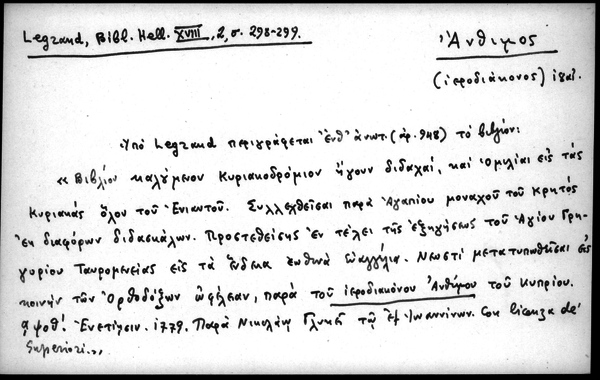 Legrand, Bibl. Hell. XVIII, 2, σ. 298-299.
Ἄνθιμος
(ἱεροδιάκονος)
Ὑπό Legrand περιγράφεται ἔνθ' ἀνωτ. (ἀρ. 948) τό βιβλίον:
« Βιβλίον καλούμενον Κυριακοδρόμιον ἤγουν διδαχαί, καί Ὁμιλίαι εἰς τάς
Κυριακάς ὅλου τοῦ Ἐνιαυτοῦ. Συλλεχθεῖσαι παρά Ἀγαπίου μοναχοῦ τοῦ Κρητός
ἐκ διαφόρων διδασκάλων. Προστεθείσης ἐν τέλει τῆς ἐξηγήσεως τοῦ Ἁγίου Γρη-
γορίου Ταυρομενείας εἰς τά ἕνδεκα ἑωθινά Εὐαγγέλια. Νεωστί μετατυπωθεῖσαι εἰς
κοινήν τῶν Ὀρθοδόξων ὠφέλειαν, παρά τοῦ ἱεροδιακόνου Ἀνθίμου τοῦ Κυπρίου.
αψοθ! Ἐνετίησιν. 1779. Παρά Νικολάῳ Γλυκεῖ τῷ ἐξ Ἰωαννίνων. Con licenza de'
Superiori.»